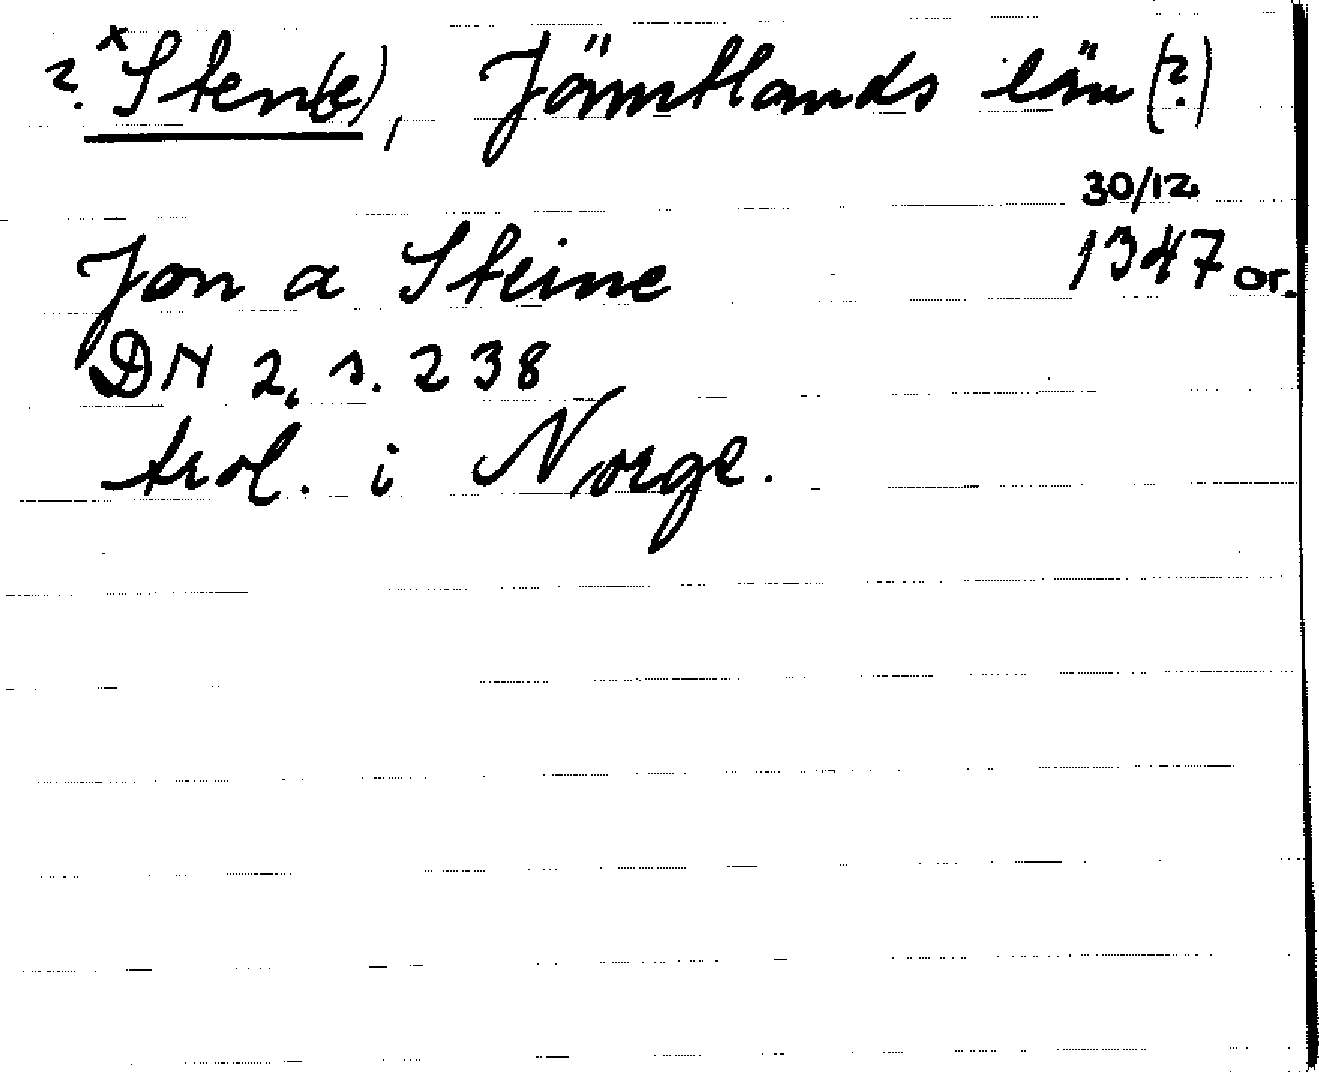 ?. *Sten(e), Jämtlands län (?)
30/12
Jon a Steine 1347 or.
DN 2, s. 238
trol. i Norge.